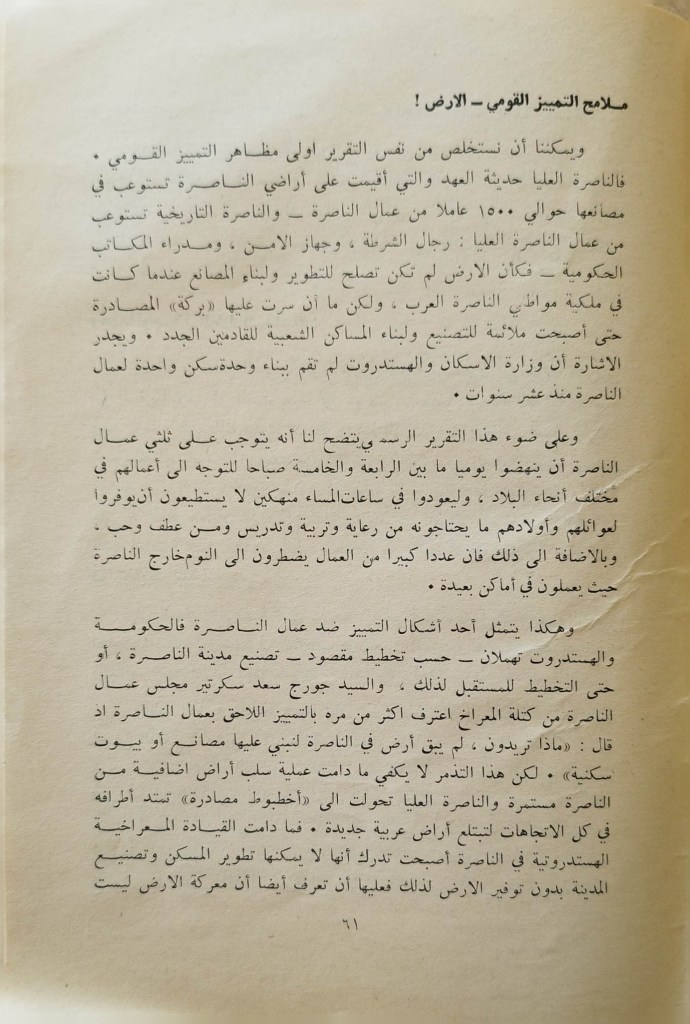 ملامح التمييز القومي – الارض !
ويمكننا أن نستخلص من نفس التقرير اولى مظاهر التمييز القومي •
فالناصرة العليا حديثة العهد والتي أقيمت على أراضي الناصرة تستوعب في
مصانعها حوالي ١٥٠٠ عاملا من عمال الناصرة – والناصرة التاريخية تستوعب
من عمال الناصرة العليا : رجال الشرطة ، وجهاز الامن ، ومدراء المكاتب
الحكومية – فكأن الارض لم تكن تصلح للتطوير ولبناء المصانع عندما كانت
في ملكية مواطني الناصرة العرب ، ولكن ما أن سرت عليها «بركة» المصادرة
حتى أصبحت ملائمة للتصنيع ولبناء المساكن الشعبية للقادمين الجدد • ويجدر
الاشارة أن وزارة الاسكان والهستدروت لم تقم ببناء وحدةسكن واحدة لعمال
الناصرة منذ عشر سنوات •
وعلى ضوء هذا التقرير الرسمي يتضح لنا أنه يتوجب على ثلثي عمال
الناصرة أن ينهضوا يوميا ما بين الرابعة والخامسة صباحا للتوجه الى أعمالهم في
مختلف أنحاء البلاد ، وليعودوا في ساعات المساء منهكين لا يستطيعون أن يوفروا
لعوائلهم وأولادهم ما يحتاجونه من رعاية وتربية وتدريس ومن عطف وحب ،
وبالاضافة الى ذلك فان عددا كبيرا من العمال يضطرون الى النوم خارج الناصرة
حيث يعملون في أماكن بعيدة •
وهكذا يتمثل أحد أشكال التمييز ضد عمال الناصرة فالحكومة
والهستدروت تهملان – حسب تخطيط مقصود – تصنيع مدينة الناصرة ، أو
حتى التخطيط للمستقبل لذلك ، والسيد جورج سعد سكرتير مجلس عمال
الناصرة من كتلة المعراخ اعترف اكثر من مره بالتمييز اللاحق بعمال الناصرة اذ
قال : «ماذا تريدون ، لم يبق أرض في الناصرة لنبني عليها مصانع أو بيوت
سكنية» • لكن هذا التذمر لا يكفي ما دامت عملية سلب أراض اضافية من
الناصرة مستمرة والناصرة العليا تحولت الى «أخطبوط مصادرة» تمتد أطرافه
في كل الاتجاهات لتبتلع أراض عربية جديدة • فما دامت القيادة المعراخية
الهستدروتية في الناصرة أصبحت تدرك أنها لا يمكنها تطوير المسكن وتصنيع
المدينة بدون توفير الارض لذلك فعليها أن تعرف أيضا أن معركة الارض ليست
٦١